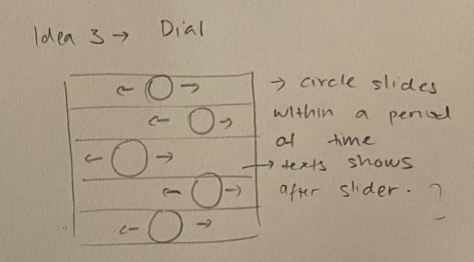 Idea 3 → Dial
→ circle slides
within a period
of time
→ texts shows
after slider. ?